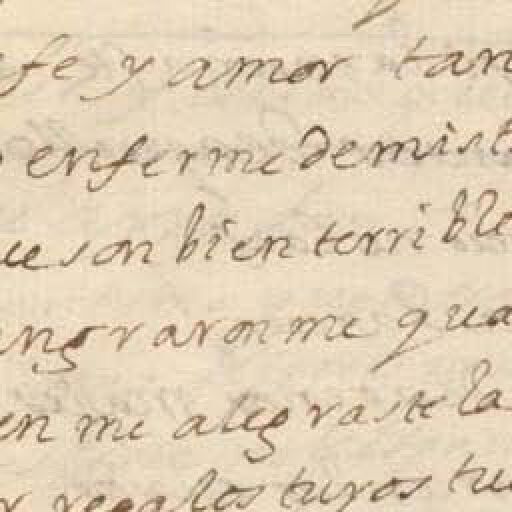 fe y amor tan
enferme de mis t
ue son bien terrible
angraronme qua
en me alegraste la
r regalos tuyos tu